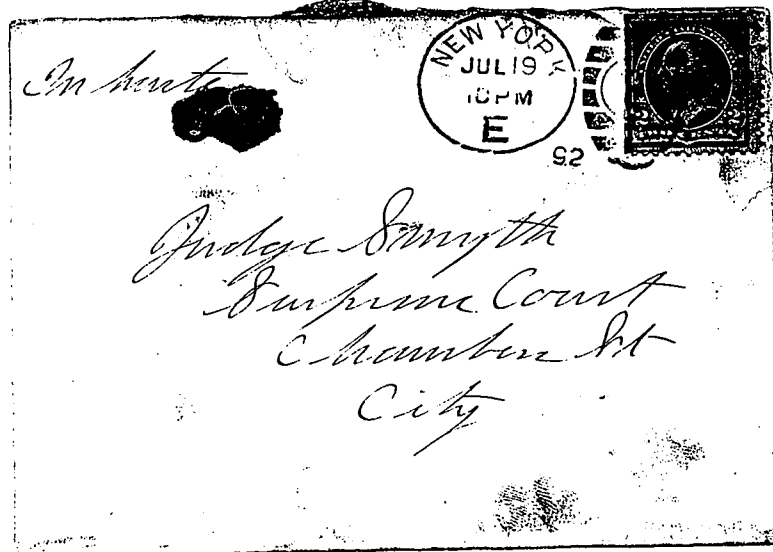 In haste
NEW YORK
JUL 19
10 PM
E
92
Judge Smyth
Surpreme Court
Chambers St
City